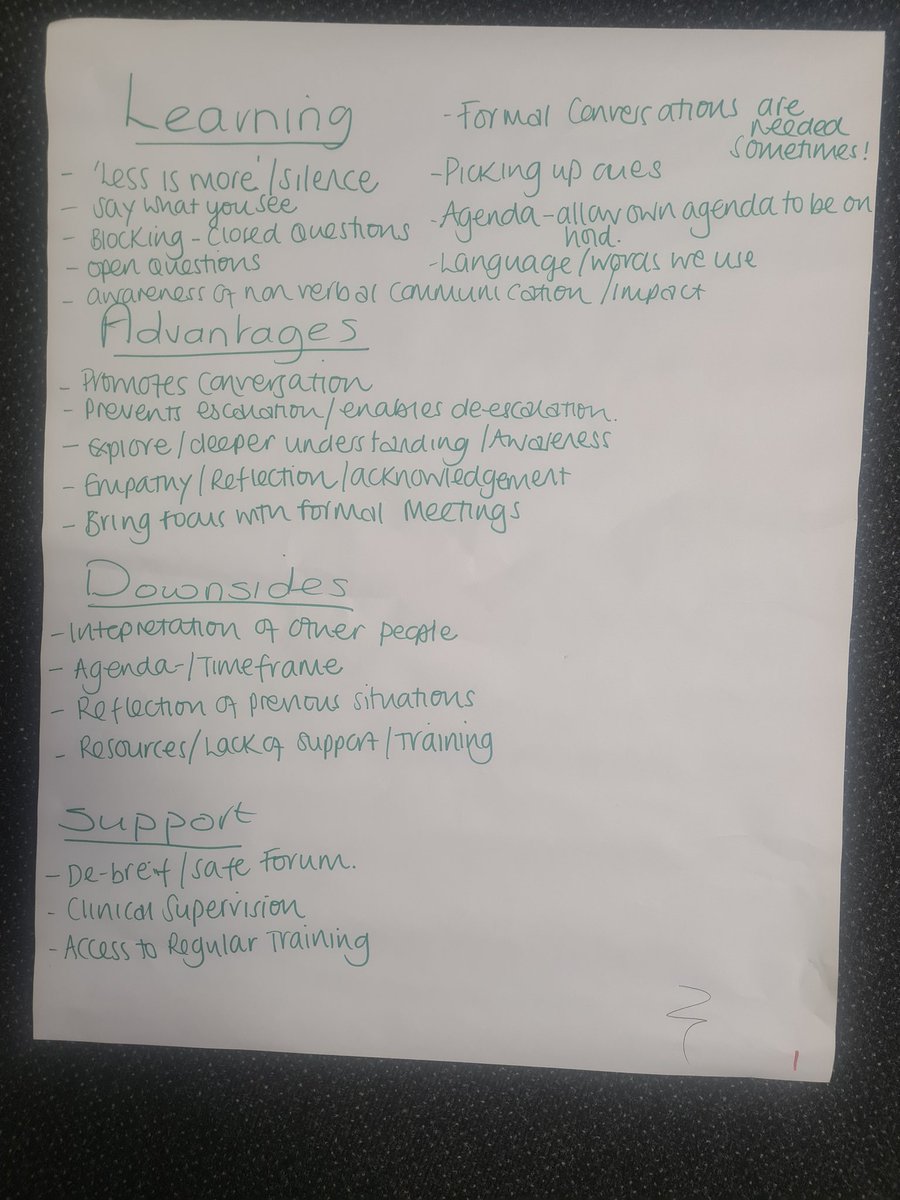 Learning
- 'Less is more'/silence
- say what you see
- Blocking - closed questions
- open questions
- awareness of non verbal communication /impact
- Formal Conversations are
needed
sometimes!
- Picking up cues
- Agenda - allow own agenda to be on
hold.
- Language/words we use
Advantages
- Promotes conversation
- Prevents escalation/enables de-escalation.
- Explore/deeper understanding/Awareness
- Empathy/Reflection/acknowledgement
- Bring focus with formal Meetings
Downsides
- Intepretation of other people
- Agenda-/Timeframe
- Reflection of previous situations
- Resources/Lack of support/Training
Support
- De-breif/safe Forum.
- Clinical Supervision
- Access to Regular Training
1